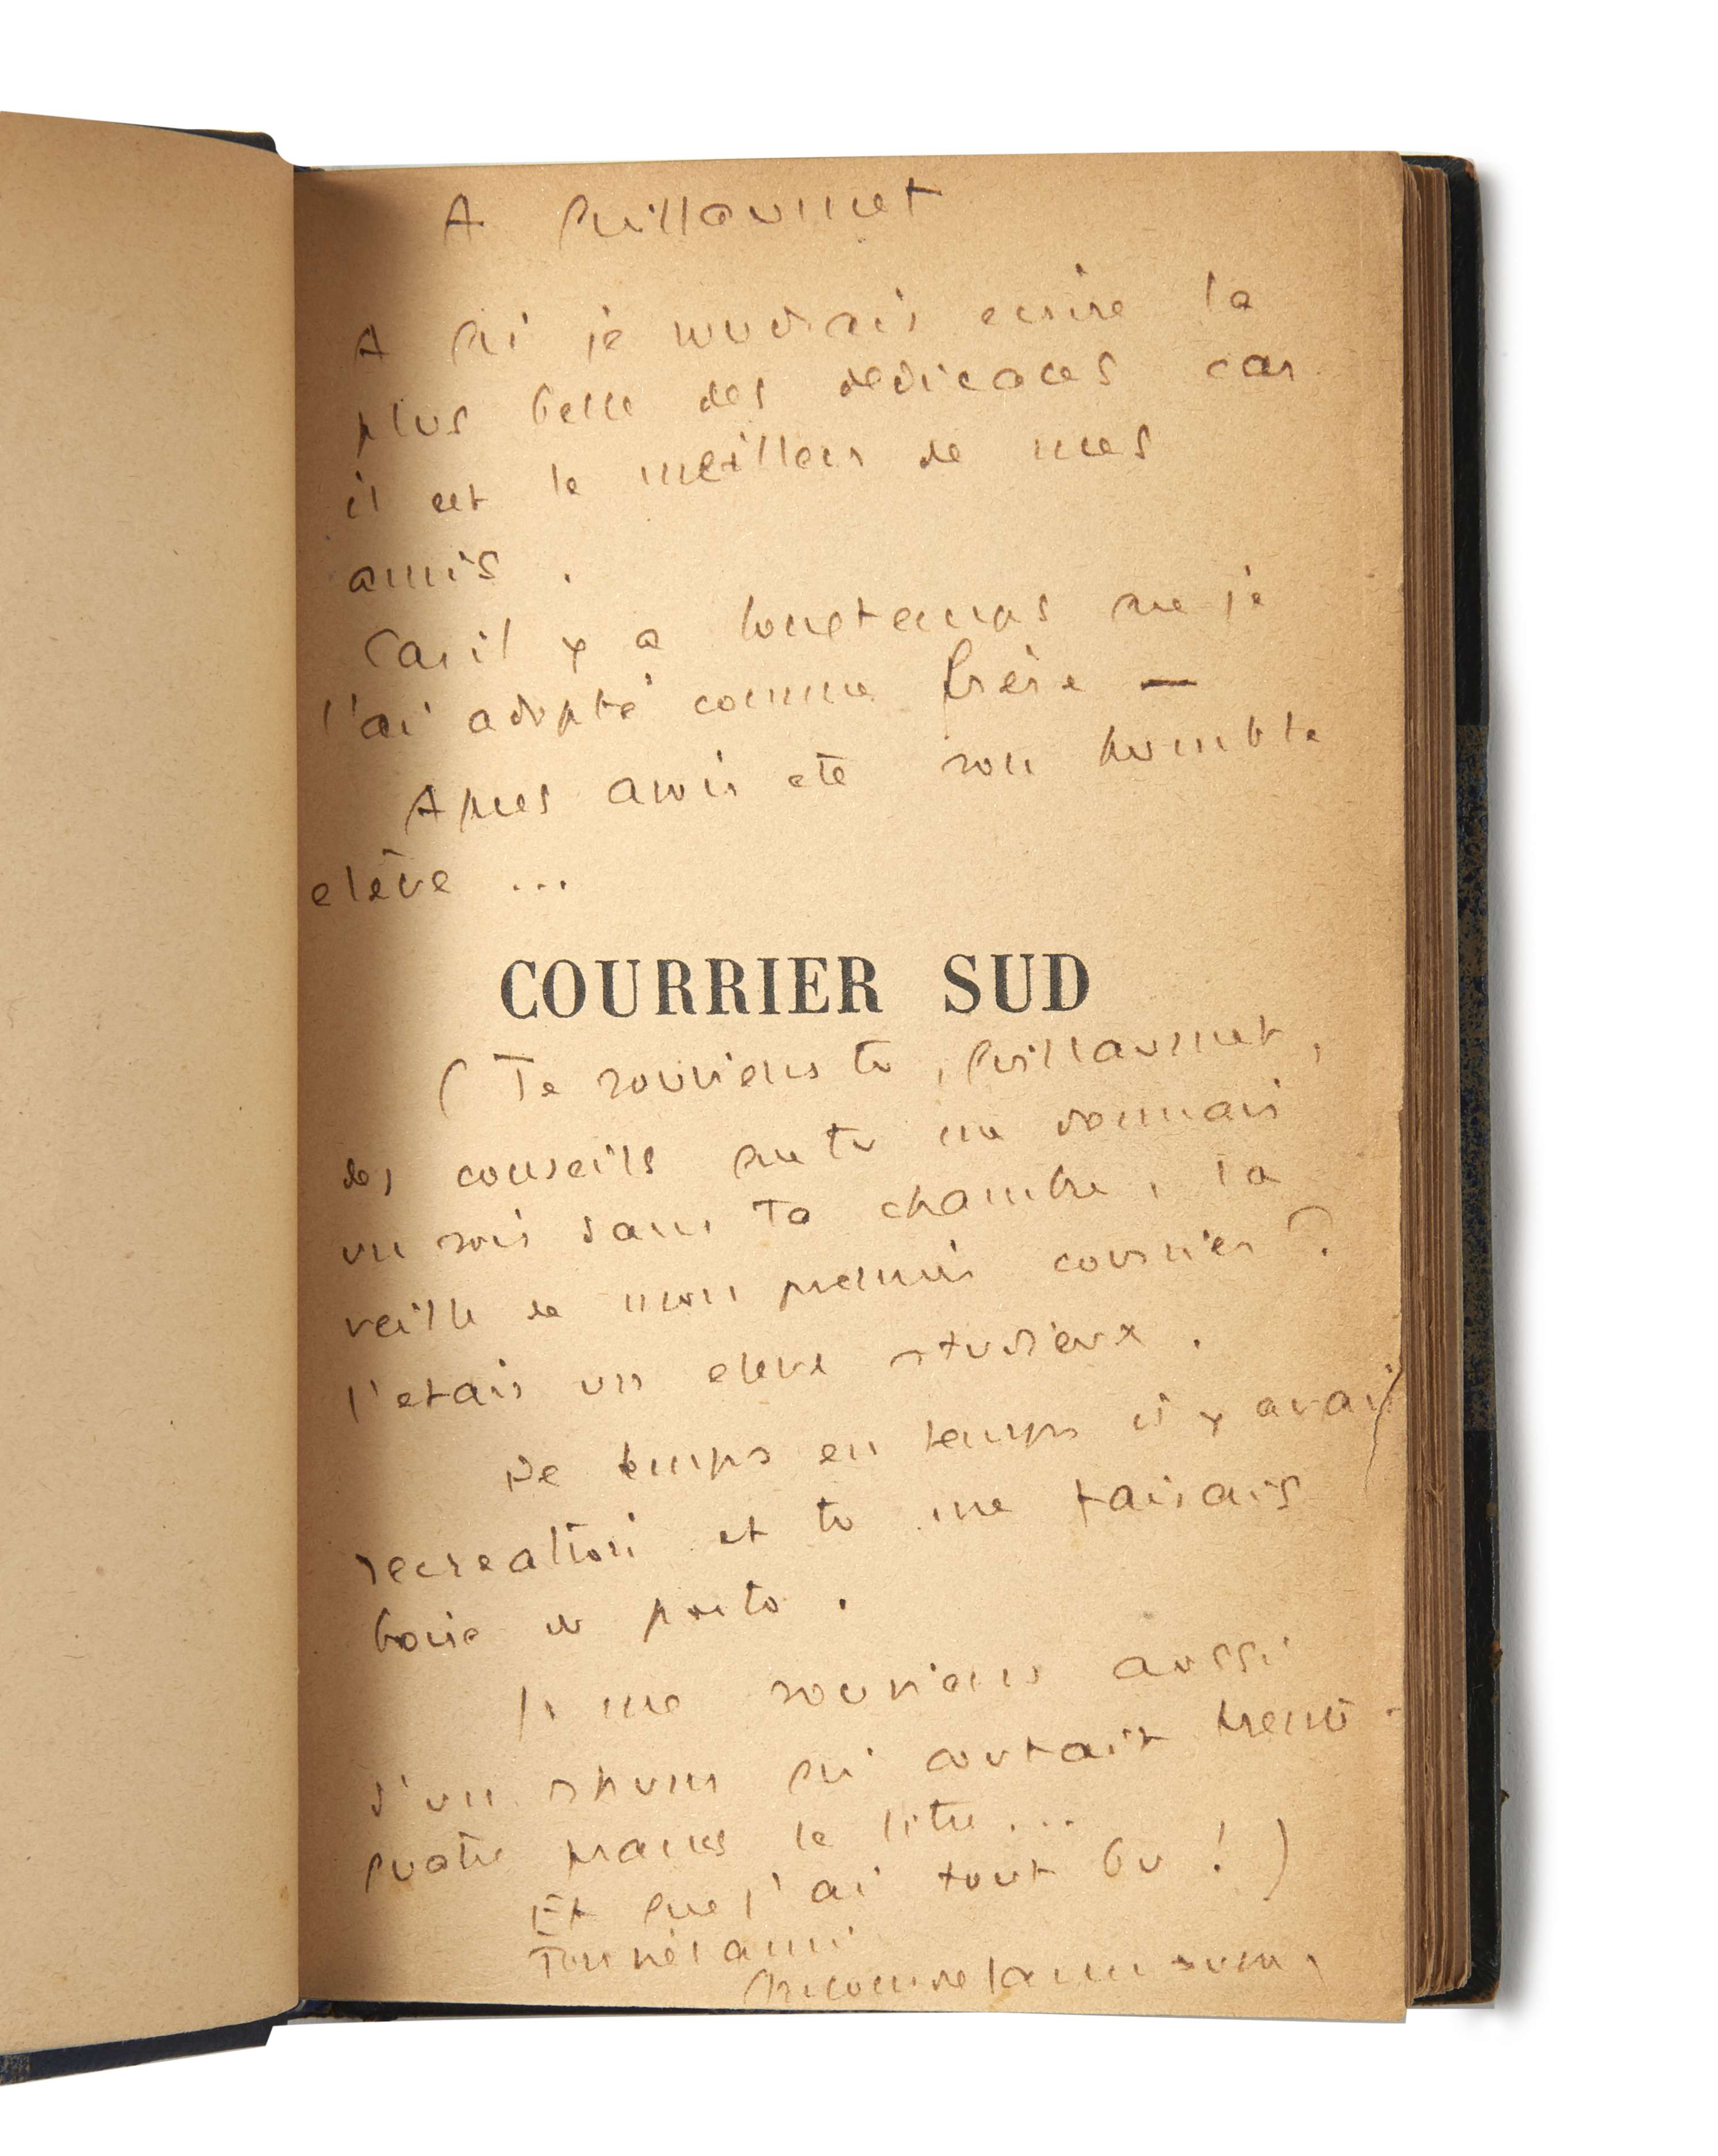 A Guillaumet
A qui je voudrais ecrire la
plus belle des dedicaces car
il est le meilleur de mes
amis .
Car il y a longtemps que je
l'ai adopté comme frère —
Apres avoir eté son humble
elève ...
COURRIER SUD
( Te souviens tu , Guillaumet ,
des conseils que tu me donnais
un soir dans ta chambre , la
veille de mon premier courrier ?
J'etais un eleve studieux .
De temps en temps il y avait
recreation et tu me faisais
boire du porto .
Je me souviens aussi
d'un rhum qui coutait trente -
quatre francs le litre ...
Et que j'ai tout bu ! )
Ton viel ami